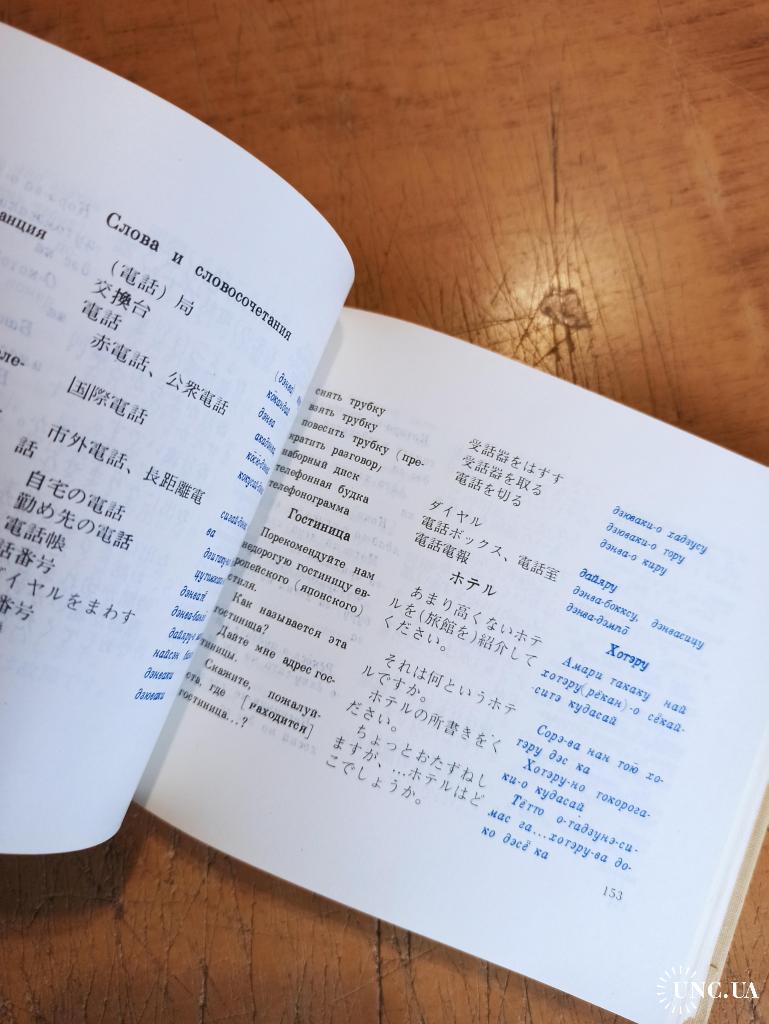 Слова и словосочетания
(電話) 局
交換台
電話
赤電話、公衆電話
国際電話
市外電話、長距離電
話
自宅の電話
勤め先の電話
電話帳
話番号
イヤルをまわす
番号
дэнва
ва
дэнваки
дзюваки
снять трубку
взять трубку
повесить трубку (пре-
кратить разговор)
наборный диск
телефонная будка
телефонограмма
受話器をはずす
受話器を取る
電話を切る
ダイヤル
電話ボックス、電話室
電話電報
дзюваки-о хадзусу
дзюваки-о тору
дэнва-о киру
дайяру
дэнва-боккусу, дэнвасицу
дэнва-дэмпō
Гостиница
ホテル
Хотэру
Порекомендуйте нам
недорогую гостиницу ев-
ропейского (японского)
стиля.
あまり高くないホテ
ルを(旅館を)紹介して
ください。
Амари такаку най
хотэру(рёкан)-о сёкай-
-ситэ кудасай
Как называется эта
гостиница?
それは何というホテ
ルですか。
Сорэ-ва нан тою̄ хо-
тэру дэс ка
Дайте мне адрес гос-
тиницы.
ホテルの所書きをく
ださい。
Хотэру-но токорога-
ки-о кудасай
Скажите, пожалуй-
ста, где [находится]
гостиница...?
ちょっとおたずねし
ますが、...ホテルはど
こでしょうか。
Тётто о-тадзунэ-си-
мас га...хотэру-ва до-
ко дэсё ка
153
UNC.UA